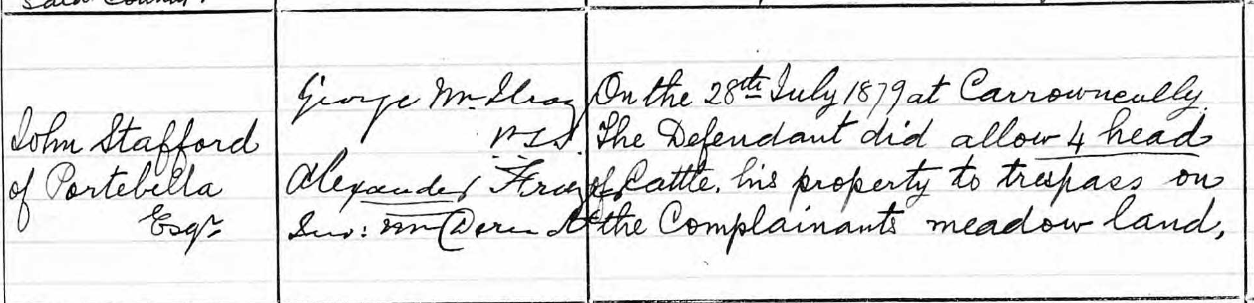 John Stafford
of Portebella
Esqr
George
Alexander
On the 28th July 1879 at Carrowneally
The Defendant did allow 4 head
of Cattle, his property to trespass on
the Complainants meadow land,